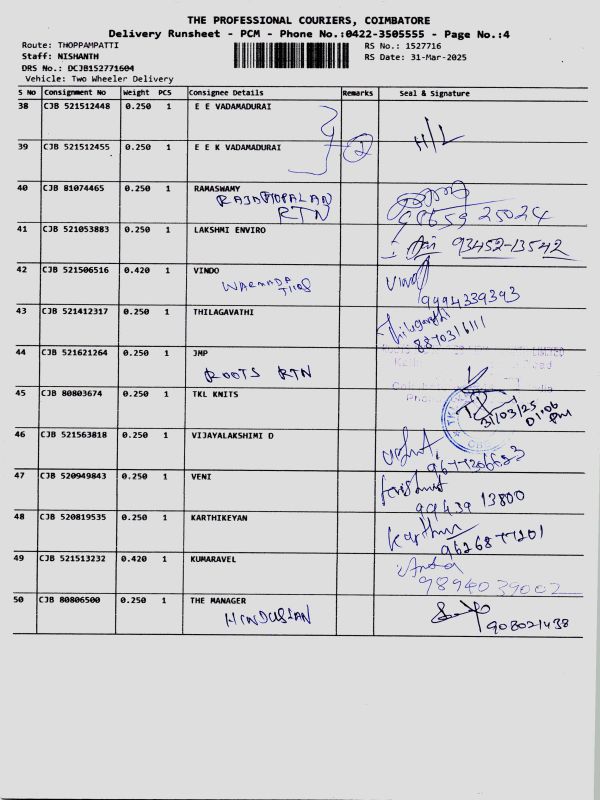 THE PROFESSIONAL COURIERS, COIMBATORE
Delivery Runsheet - PCM - Phone No.:0422-3505555 - Page No.:4
Route: THOPPAMPATTI RS No.: 1527716
Staff: NISHANTH RS Date: 31-Mar-2025
DRS No.: DCJB152771604
Vehicle: Two Wheeler Delivery
S No Consignment No Weight PCS Consignee Details Remarks Seal & Signature
38 CJB 521512448 0.250 1 E E VADAMADURAI
39 CJB 521512455 0.250 1 E E K VADAMADURAI 2 H/L
40 CJB 81074465 0.250 1 RAMASWAMY
RAJAGOPALAN
RTN 98659 25024
41 CJB 521053883 0.250 1 LAKSHMI ENVIRO 93452-13542
42 CJB 521506516 0.420 1 VINDO
9994339393
43 CJB 521412317 0.250 1 THILAGAVATHI Thilagavathi
8870316111
44 CJB 521621264 0.250 1 JMP
ROOTS RTN
45 CJB 80803674 0.250 1 TKL KNITS 31/03/25
01:06
PM
46 CJB 521563818 0.250 1 VIJAYALAKSHIMI D
47 CJB 520949843 0.250 1 VENI
99439 13800
48 CJB 520819535 0.250 1 KARTHIKEYAN
9626877201
49 CJB 521513232 0.420 1 KUMARAVEL
9894039002
50 CJB 80806500 0.250 1 THE MANAGER
HINDUSTAN 908021438